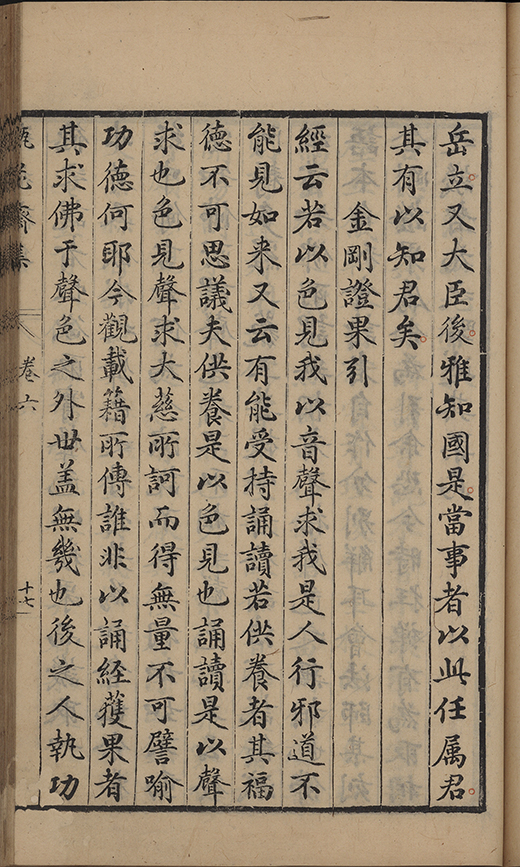 岳立又大臣後雅知國是當事者以此任属君
其有以知君矣
金剛證果引
經云若以色見我以音聲求我是人行邪道不
能見如来又云有能受持誦讀若供養者其福
德不可思議夫供養是以色見也誦讀是以聲
求也色見聲求大慈所訶而得無量不可譬喻
功德何耶今觀載籍所傳誰非以誦經獲果者
其求佛于聲色之外世盖無幾也後之人執功
瓶花齋集
卷六
十七